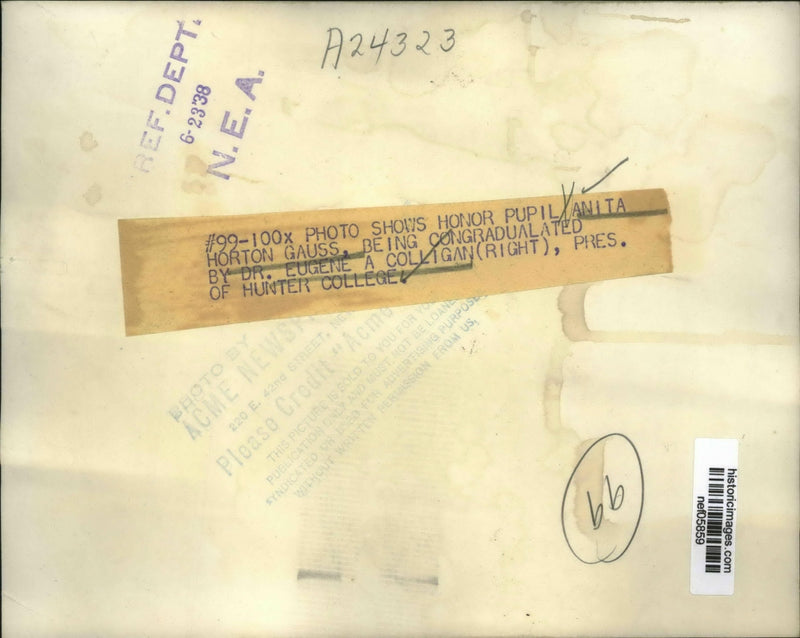 A24323
REF. DEPT.
6-23'38
N.E.A.
#99-100x PHOTO SHOWS HONOR PUPIL ANITA
HORTON GAUSS, BEING CONGRADUALATED
BY DR. EUGENE A COLLIGAN(RIGHT), PRES.
OF HUNTER COLLEGE.
PHOTO BY
ACME NEWSP
220 E. 42nd STREET, NE
Please Credit "Acme
THIS PICTURE IS SOLD TO YOU FOR YO
PUBLICATION ONLY AND MUST NOT BE LOANE
SYNDICATED OR USED FOR ADVERTISING PURPOSE
WITHOUT WRITTEN PERMISSION FROM US.
99
historicimages.com
nef05859